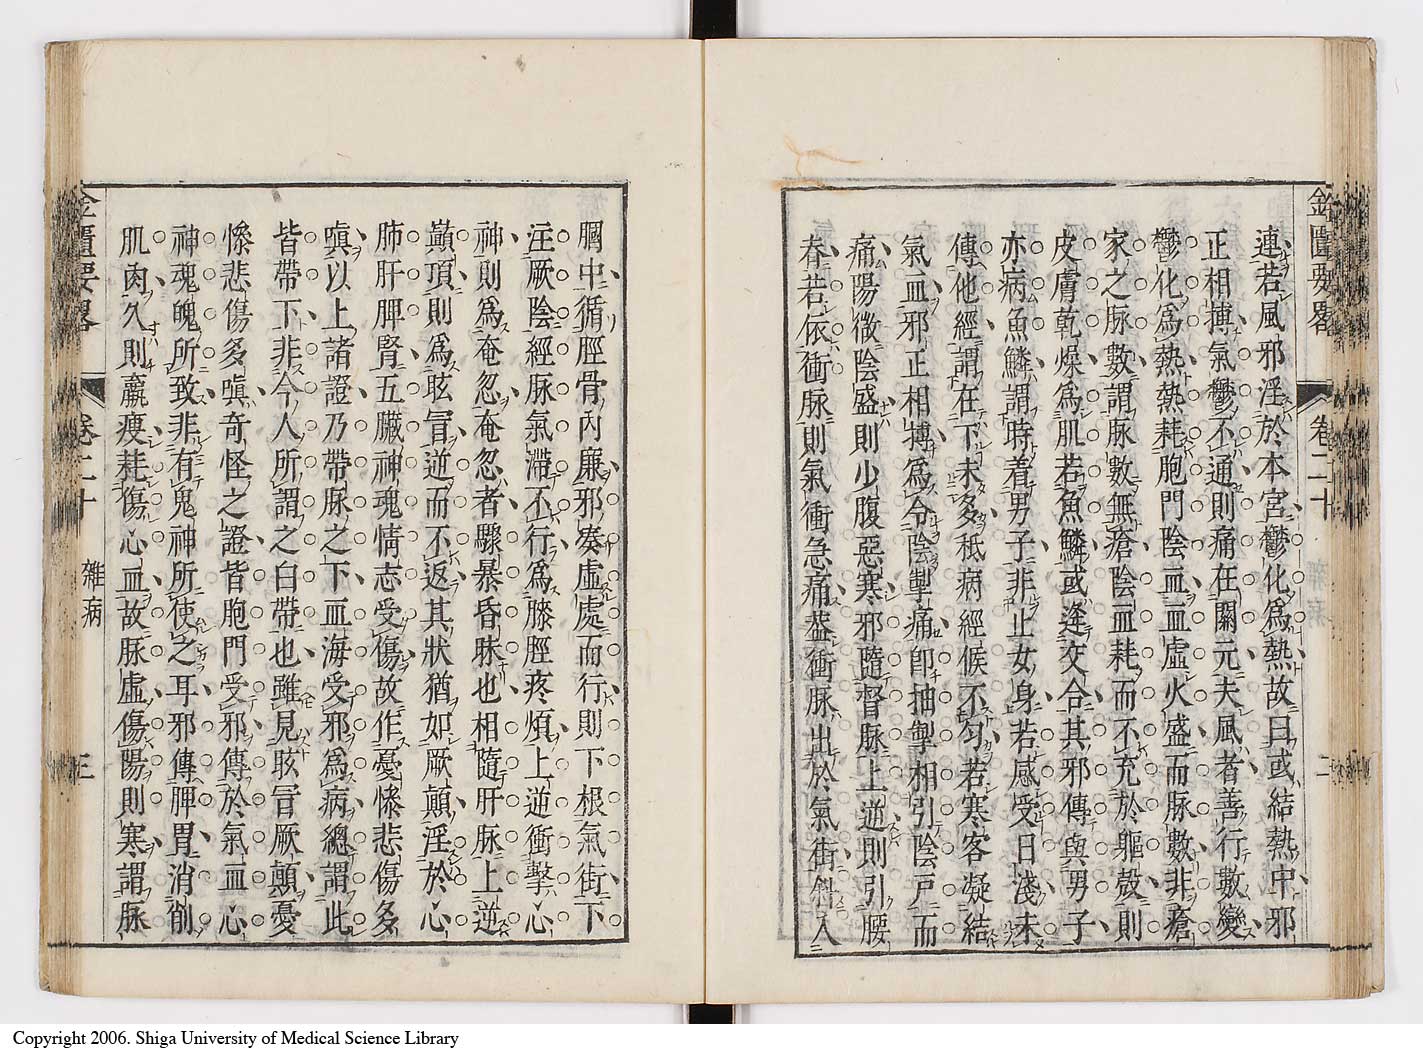 金匱要畧 卷二十 二
連若風邪淫於本宮鬱化爲熱故曰或結熱中邪
正相搏氣鬱不通則痛在關元夫風者善行數變
鬱化爲熱熱耗胞門陰血血虛火盛而脉數非瘡
家之脉數謂脉數無瘡陰血耗而不充於軀殼則
皮膚乾燥爲肌若魚鱗或逢交合其邪傳與男子
亦病魚鱗謂時着男子非止女身若感受日淺未
傳他經謂在下未多秪病經候不匀若寒客凝結
氣血邪正相搏爲令陰掣痛卽抽掣相引陰戸而
痛陽微陰盛則少腹惡寒邪隨督脉上逆則引腰
春若依衝脉則氣衝急痛葢衝脉出於氣街斜入
胸中循脛骨內廉邪湊虛處而行則下根氣街下
注厥陰經脉氣滯不行爲膝脛疼煩上逆衝擊心
神則爲奄忽奄忽者驟暴昏昧也相隨肝脉上逆
巔頂則爲眩冒逆而不返其狀猶如厥顛淫於心
肺肝脾腎五臟神魂情志受傷故作憂慘悲傷多
嗔以上諸證乃帶脉之下血海受邪爲病總謂此
皆帶下非今人所謂之白帶也雖見眩冒厥顛憂
慘悲傷多嗔奇怪之證皆胞門受邪傳於氣血心
神魂魄所致非有鬼神所使之耳邪傳脾胃消削
肌肉久則羸瘦耗傷心血故脉虛傷陽則寒謂脉
金匱要畧 卷二十 雜病 三
Copyright 2006. Shiga University of Medical Science Library